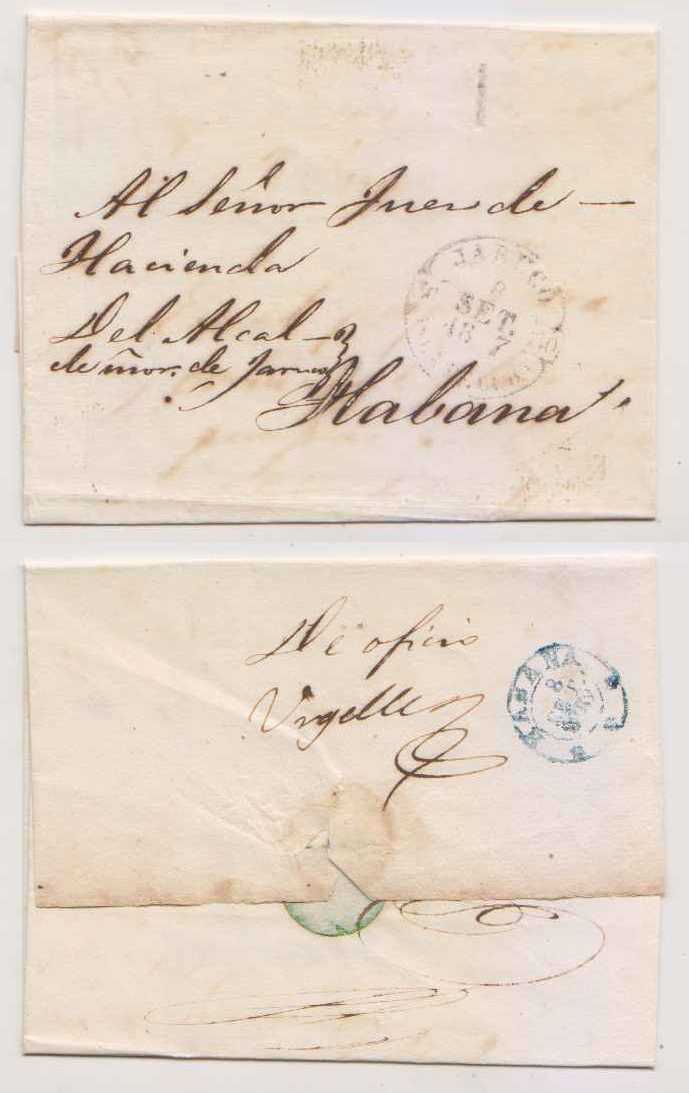 Al Señor Juez de
Hacienda
Del Alcal-
de
de Jaruco
Habana
JARUCO
8
SET.
18 7
De oficio
HABANA
8